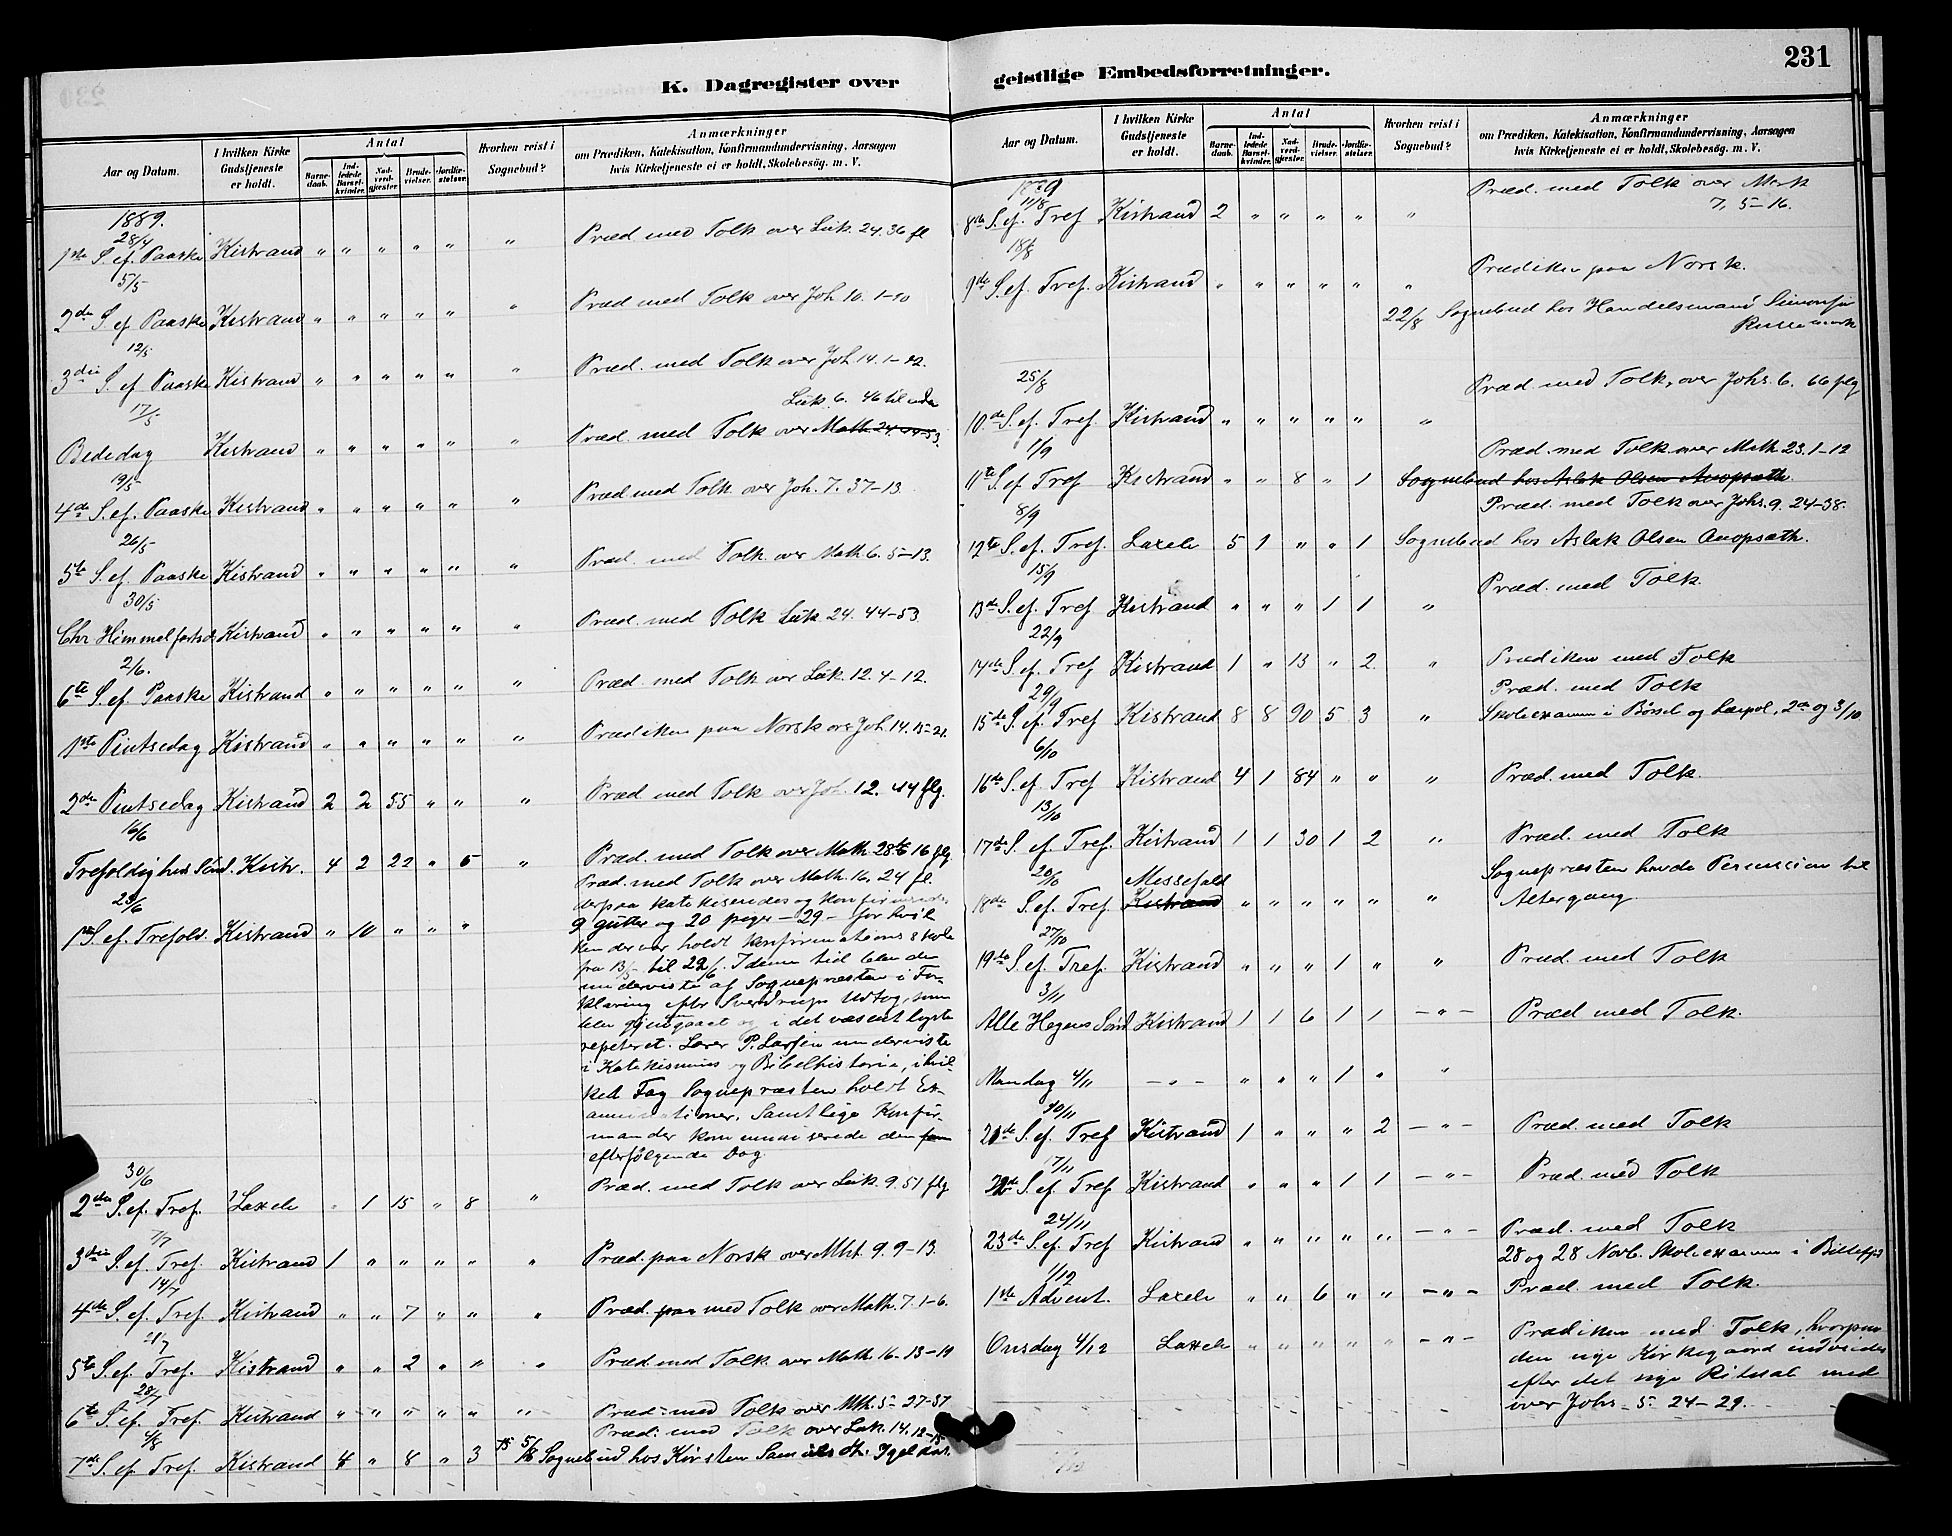 K. Dagregister over geistlige Embedsforretninger.
231
Aar og Datum.
I hvilken Kirke Gudstjeneste er holdt.
Antal
Barnedaab.
Indledede Barselkvinder.
Nadverdgjester.
Brudevielser.
Jordfæstelser.
Hvorhen reist i Sognebud?
Anmærkninger
om Prædiken, Katekisation, Konfirmandundervisning, Aarsagen
hvis Kirketjeneste ei er holdt, Skolebesøg. m. V.
1889.
28/4
1ste S. ef. Paaske Kistrand " " " " " " Præd. med Tolk over Luk. 24. 36 fl
5/5
2den S. ef. Paaske Kistrand " " " " " " Præd med Tolk over Joh. 10. 1-10
12/5
3die S. ef Paaske Kistrand " " " " " " Præd. med Tolk over Joh. 14. 1-12.
17/5
Luk. 6. 46 til
Bededag Kistrand " " " " " " Præd. med Tolk over Math. 24.
19/5
4de S. ef. Paaske Kistrand " " " " " " Præd med Tolk over Joh. 7. 37-13.
26/5
5te S. ef. Paaske Kistrand " " " " " " Præd. med Tolk over Math 6. 5-13.
30/5
Chr Himmelfartsd Kistrand " " " " " " Præd. med Tolk Luk. 24. 44-53.
2/6.
6te S. ef. Paaske Kistrand " " " " " " Præd. med Tolk over Luk. 12. 4-12.
1ste Pintsedag Kistrand " " " " " " Prædiken paa Norsk over Joh. 14. 15-21.
2den Pintsedag Kistrand 2 2 55 " " " Præd med Tolk over Joh. 12. 44 flg.
16/6
Trefoldighed Sønd. Kistr. 4 2 22 " 5 " Præd. med Tolk over Math. 28 16 flg
23/6
Præd. med Tolk over Math. 16. 24 fl.
derpaa katekiseredes og konfirmeredes
1ste S. ef. Trefold. Kistrand " 10 " " " 9 gutter og 20 piger - 29 - for hvil
ken der var holdt Konfirmations skole
fra 13/5 til 22/6. I denne tid blev den
underviste af Sognepræsten i For-
klaring efter Sverdrups Udtog, som
blev gjengaaet og i det væsentligste
repeteret. Lærer P. Larsen underviste
i Katekismus og Bibelhistorie, i hvil-
ket Fag Sognepræsten holdt Ex-
aminationer. Samtlige Konfir-
mander kommuniserede den
efterfølgende Dag
30/6
2den S. ef. Tref. Laxelv " 1 15 " 8 " Præd. med Tolk over Luk. 9. 51 flg
7/7
3die S. ef. Tref. Kistrand 1 " " " " " Præd. paa Norsk over Mht. 9. 9-13.
14/7
4de S. ef. Tref. Kistrand " " 7 " " " Præd. paa med Tolk over Math. 7. 1-6.
21/7
5te S. ef. Tref. Kistrand " " 2 " " " Præd. med Tolk over Math. 16. 13-19
28/7
6te S. ef. Tref. Kistrand " " " " " " Præd. med Tolk over Mth. 5- 27-37
4/8
Præd. med Tolk over Luk. 14. 12-15
7de S. ef. Tref. Kistrand 4 " 8 " 3 5/8 Sognebud hos Kirsten Samuelsdt.
Aar og Datum.
I hvilken Kirke Gudstjeneste er holdt.
Antal
Barnedaab.
Indledede Barselkvinder.
Nadverdgjester.
Brudevielser.
Jordfæstelser.
Hvorhen reist i Sognebud?
Anmærkninger
om Prædiken, Katekisation, Konfirmandundervisning, Aarsagen
hvis Kirketjeneste ei er holdt, Skolebesøg. m. V.
1889
11/8
8de S. ef. Tref Kistrand 2 " " " " " Præd. med Tolk over Mark
7, 5-16.
18/8
9de S. ef. Tref. Kistrand " " " " " " Prædiken paa Norsk.
22/8 Sognebud hos Handelsmand
25/8
10de S. ef. Tref. Kistrand " " " " " " Præd. med Tolk, over Johs. 6. 66 flg
1/9
Præd. med Tolk over Math 23. 1-12
11te S. ef Tref Kistrand " " 8 " 1 Sognebud hos Aslak Olsen
8/9
Præd. med Tolk over Johs. 9. 24-38.
12te S. ef. Tref. Laxelv 5 1 " " 1 Sognebud hos Aslak Olsen
15/9
13de S. ef. Tref Kistrand " " " 1 1 " Præd. med Tolk.
22/9
14de S. ef. Tref Kistrand 1 " 13 " 2 " Prædiken med Tolk
29/9
Præd. med Tolk
15de S. ef. Tref Kistrand 8 8 90 5 3 " Skoleexamen i Børsel og 2den og 3/10
6/10
16de S. ef. Tref Kistrand 4 1 84 " " " Præd. med Tolk.
13/10
17de S. ef. Tref. Kistrand 1 1 30 1 2 " Præd. med Tolk
20/10
Messefald
Sognepræsten havde Permission til
18de S. ef. Tref. Kistrand " " " " " " Altergang.
27/10
19de S. ef. Tref. Kistrand " " " 1 " " Præd. med Tolk
3/11
Alle Hegens Sønd Kistrand 1 1 6 1 1 - " - Præd med Tolk.
Mandag 4/11 - " - " " " 1 " "
10/11
21de S. ef. Tref Kistrand 1 " " " 2 - " - Præd. med Tolk
17/11
22de S. ef. Tref Kistrand " " " 1 1 - " - Præd. med Tolk
24/11
23de S. ef. Tref Kistrand " " " " " - " - Præd. med Tolk
28 og 28 Novb. Skoleexamen i
1/12
1ste Advent. Laxelv " " 6 " " - " - Præd. med Tolk.
Onsdag 4/12 Laxelv " " " " " - " - Prædiken med Tolk, hvorpaa
den nye Kirkegaard indviedes
efter det nye Ritual med
over Johs - 5- 24-29.